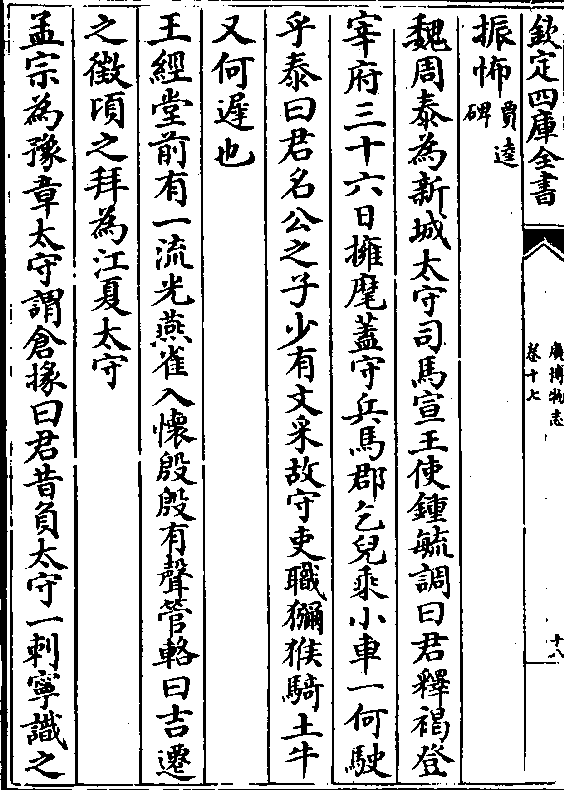 欽定四庫全書
廣博物志
卷十七
十八
振怖賈逵碑
魏周泰為新城太守司馬宣王使鍾毓調曰君釋褐登
宰府三十六日擁麾蓋守兵馬郡乞兒乘小車一何駛
乎泰曰君名公之子少有文采故守吏職獼猴騎土牛
又何遲也
王經堂前有一流光燕雀入懷殷殷有聲管輅曰吉遷
之徵頃之拜為江夏太守
孟宗為豫章太守謂倉掾曰君昔負太守一刺寧識之